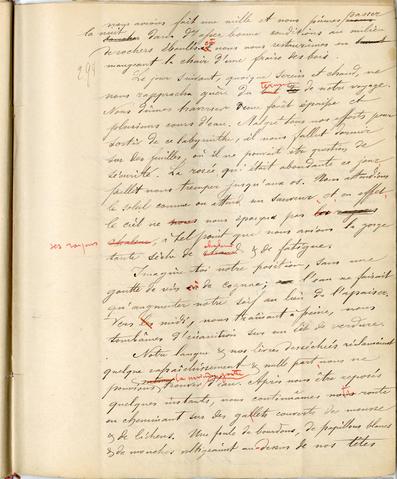 nous avions fait une mille et nous pûmes passer
la nuit dans d'assez bonne conditions au milieu
de rochers et nous nous restaurâmes en
mangeant la chair d'une fraise des bois.
294
Le jour suivant, quoique serein et chaud, ne
nous rapprocha guère du terme de notre voyage.
Nous dûmes traverser une forêt épaisse et
plusieurs cours d'eau. Malgré tous nos efforts pour
sortir de ce labyrinthe, il nous fallut dormir
sur des feuilles, où il ne pouvait être question de
sécurité. La rosée qui était abondante ce jour
faillit nous tremper jusqu'aux os. Nous attendions
le soleil comme on attend un sauveur et en effet
le ciel ne nous épargna pas
ses rayons à tel point que nous avions la gorge
toute sèche de chaleur & de fatigue.
Imagine toi notre position, sans une
goutte de vin ni de cognac; l'eau ne faisait
qu'augmenter notre soif au lieu de l'apaiser.
Vers midi, nous traînant à peine, nous
tombâmes d'inanition sur un lit de verdure.
Notre langue & nos lèvres desséchées réclamaient
quelque rafraîchissement & nulle part nous ne
pouvions trouver d'eau. Après nous être reposés
quelques instants, nous continuâmes notre route
en cheminant sur des galets couverts de mousse
& de lichens. Une foule de bourdons, de papillons blancs
& de mouches voltigeaient au-dessus de nos têtes